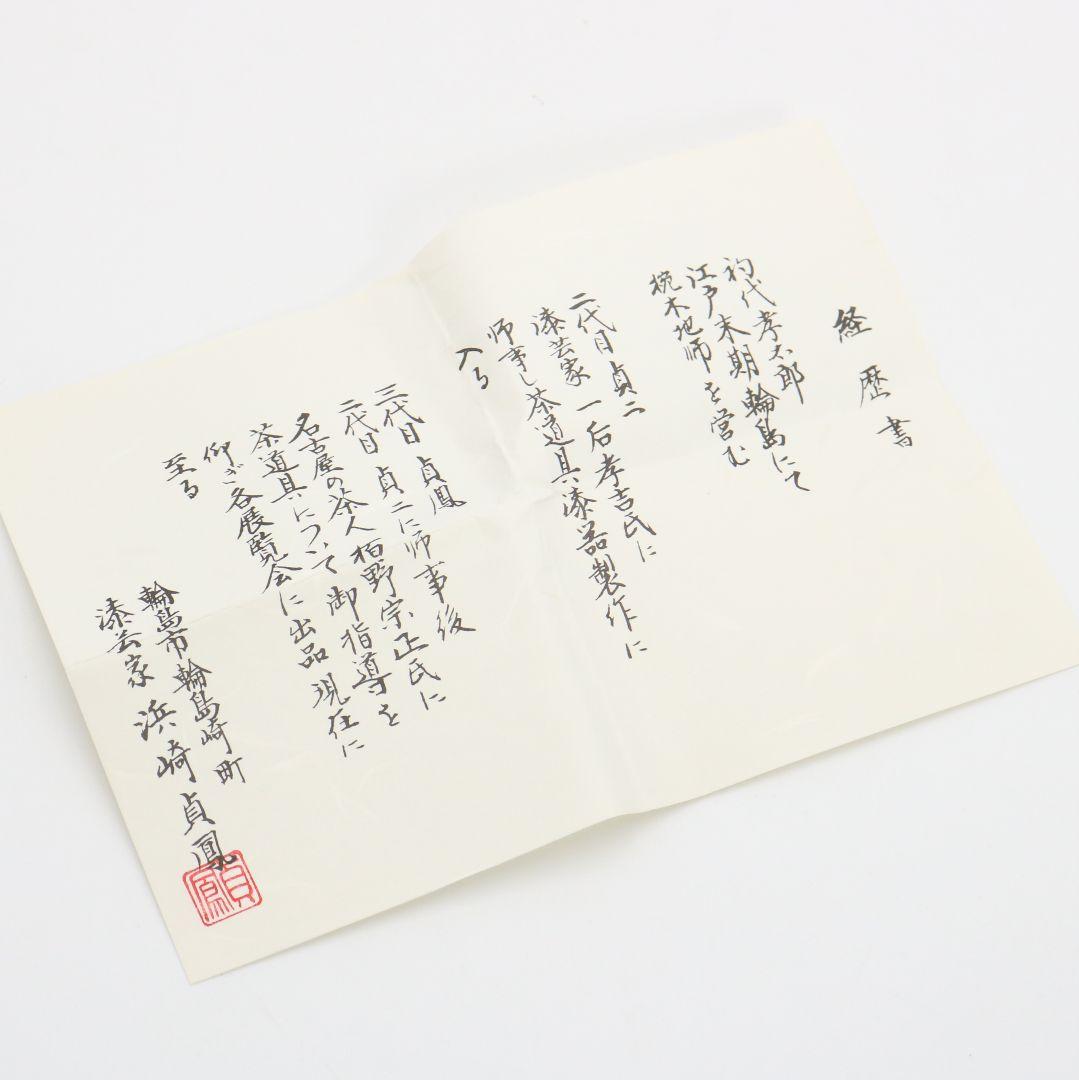 経歴書
初代孝太郎
江戸末期輪島にて
椀木地師を営む
二代目貞二
漆芸家一后孝吉氏に
师事し茶道具漆器製作に
入る
三代目貞鳳
二代目貞二に师事後
名古屋の茶人栢野宗正氏に
茶道具について御指導を
仰ぎ各展覧会に出品現在に
至る
輪島市輪島崎町
漆芸家浜崎貞鳳